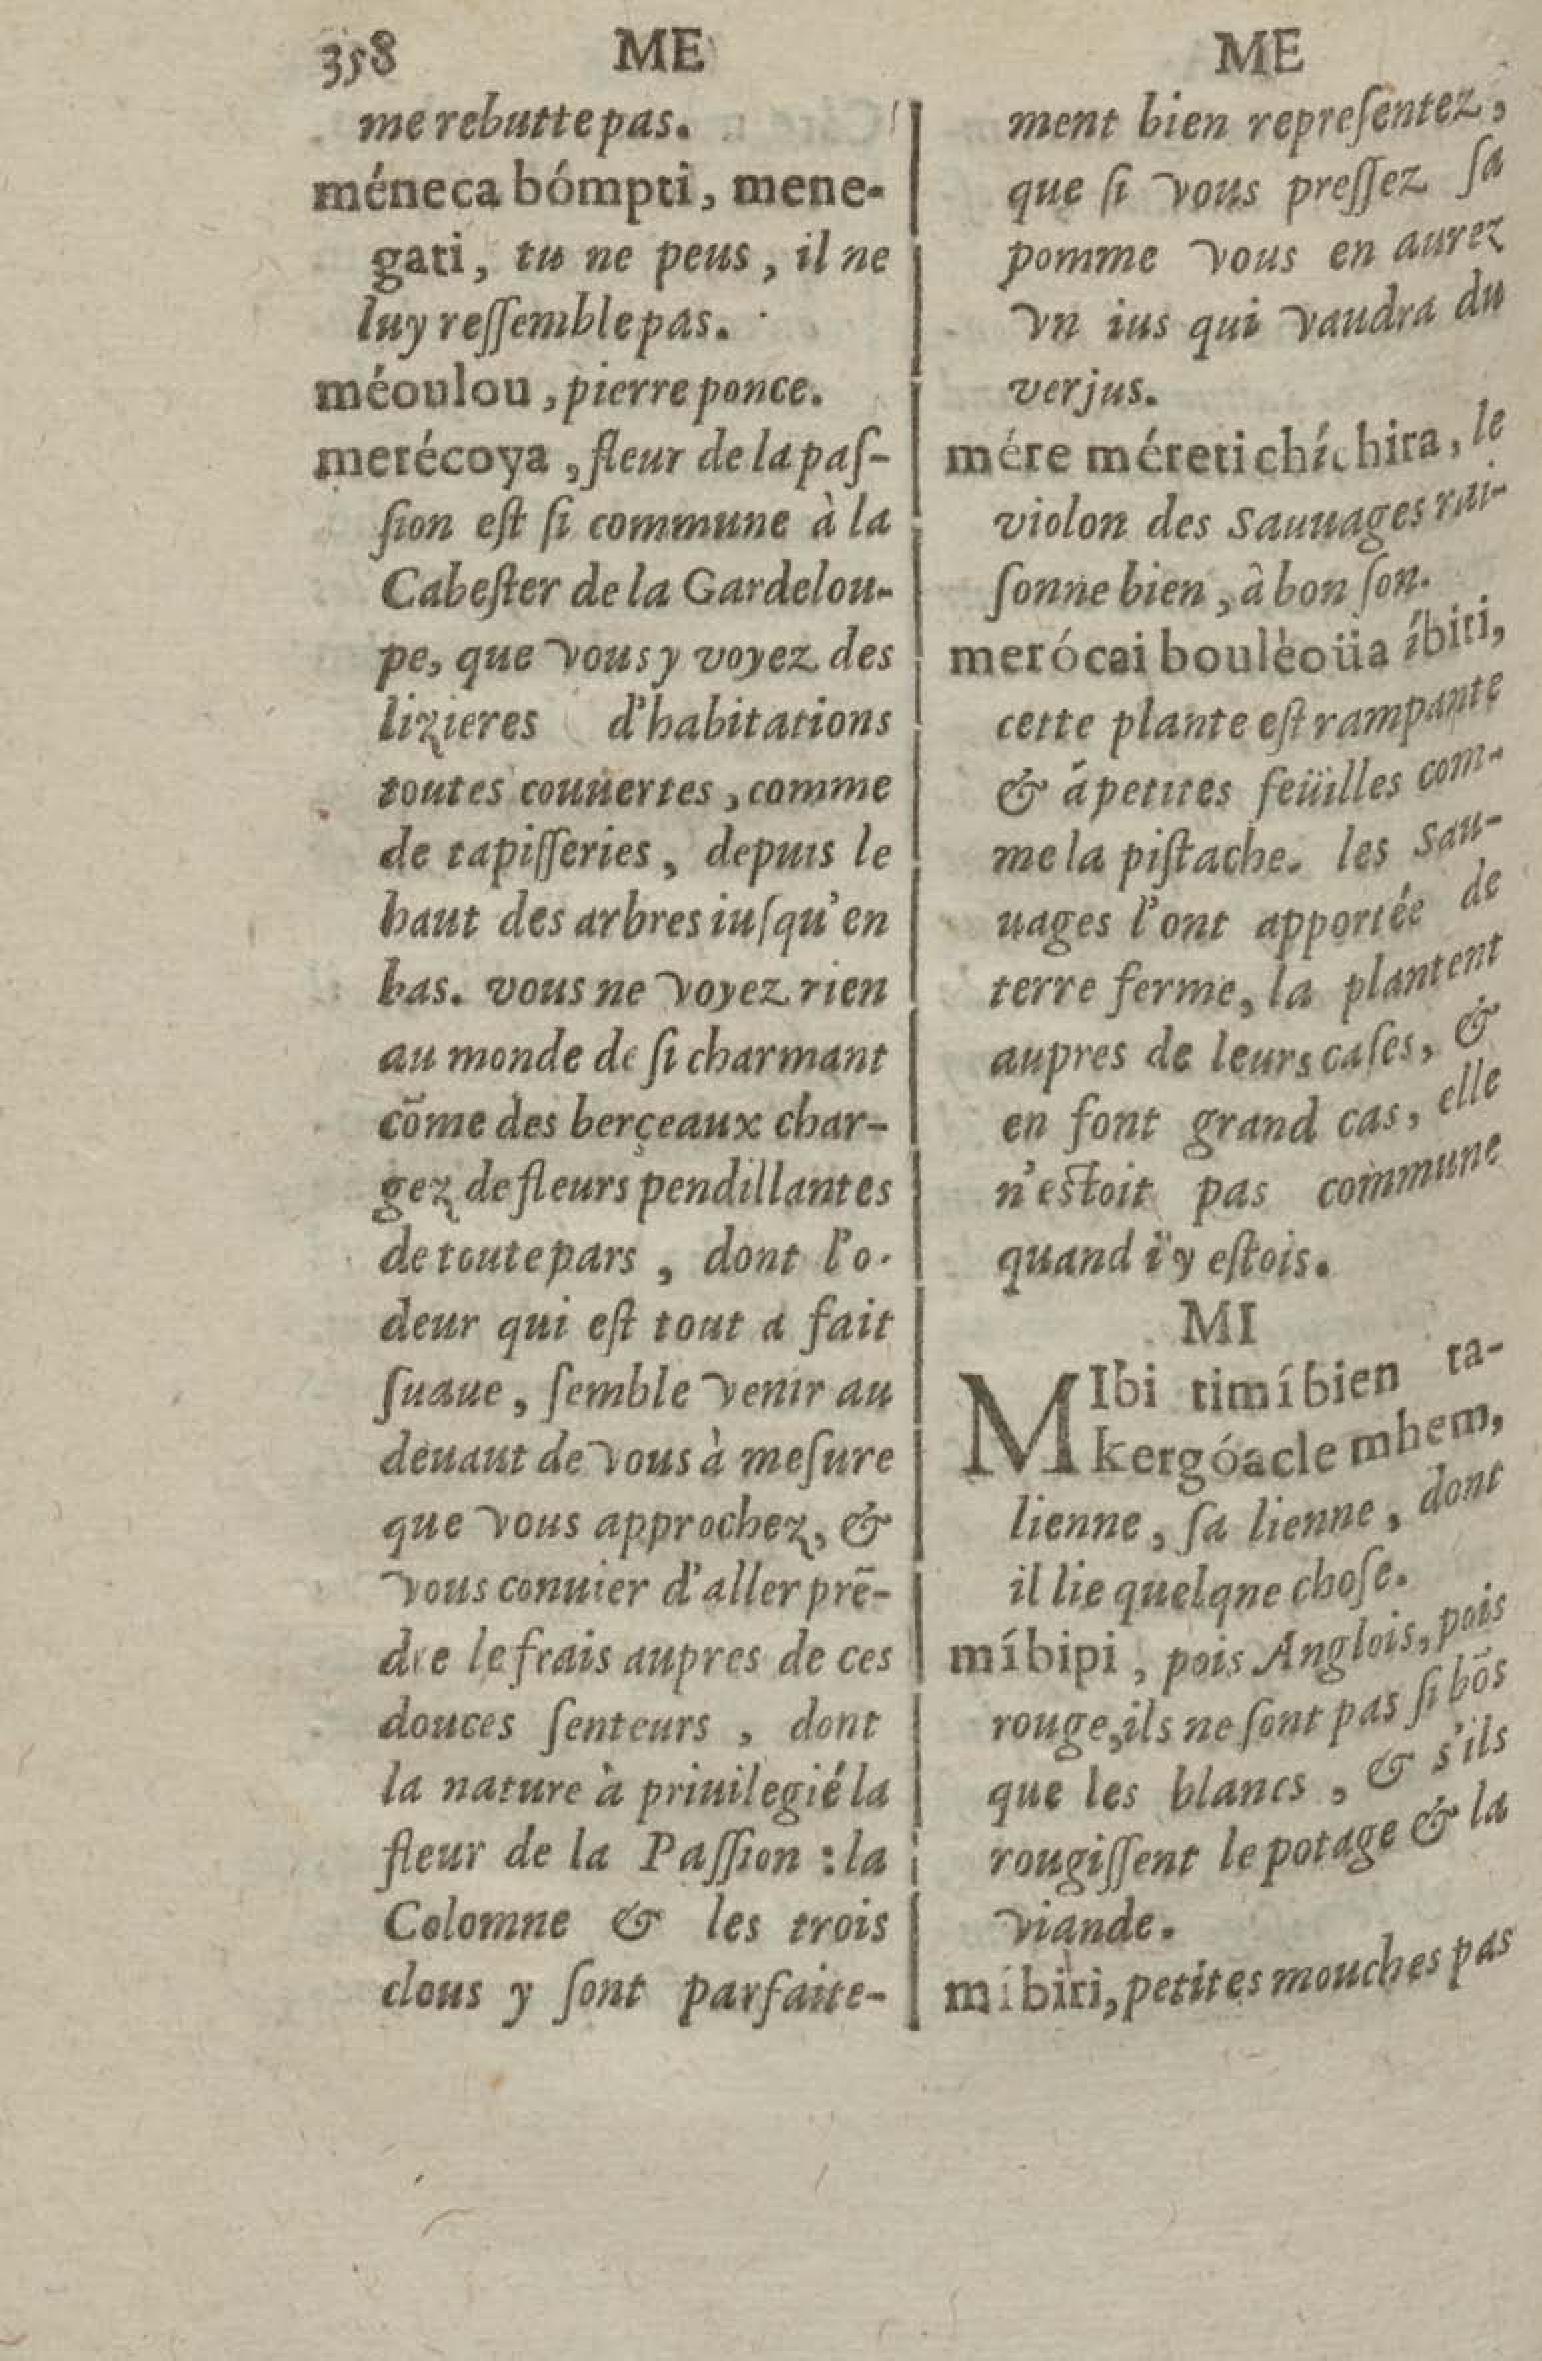 358 ME
me rebutte pas.
méneca bómpti, mene-
gati, tu ne peus, il ne
luy reſſemble pas.
méoulou, pierre ponce.
merécoya, fleur de la paſ-
ſion eſt ſi commune à la
Cabeſter de la Gardelou-
pe, que vous y voyez des
lizieres d'habitations
toutes couuertes, comme
de tapiſſeries, depuis le
haut des arbres iuſqu'en
bas. vous ne voyez rien
au monde de ſi charmant
cõme des berçeaux char-
gez de fleurs pendillantes
de toute pars, dont l'o-
deur qui eſt tout a fait
ſuaue, ſemble venir au
deuant de vous à meſure
que vous approchez, &
vous conuier d'aller prē-
dre le frais aupres de ces
douces ſenteurs, dont
la nature à priuilegié la
fleur de la Paſſion : la
Colomne & les trois
clous y ſont parfaite-
ME
ment bien repreſentez,
que ſi vous preſſez ſa
pomme vous en aurez
vn ius qui vaudra du
verjus.
mére méretichíchira, le
violon des Sauuages rai-
ſonne bien, â bon ſon.
merócai boulèoüa íbiti,
cette plante eſt rampante
& á petites feüilles com-
me la piſtache. les Sau-
uages l'ont apportée de
terre ferme, la plantent
aupres de leurs caſes, &
en font grand cas, elle
n'eſtoit pas commune
quand i'y eſtois.
MI
MIbi timíbien ta-
kergóacle mhem,
lienne, ſa lienne, dont
il lie quelqne choſe.
míbipi, pois Anglois, pois
rouge, ils ne ſont pas ſi bõs
que les blancs, & s'ils
rougiſſent le potage & la
viande.
míbiri, petites mouches pas